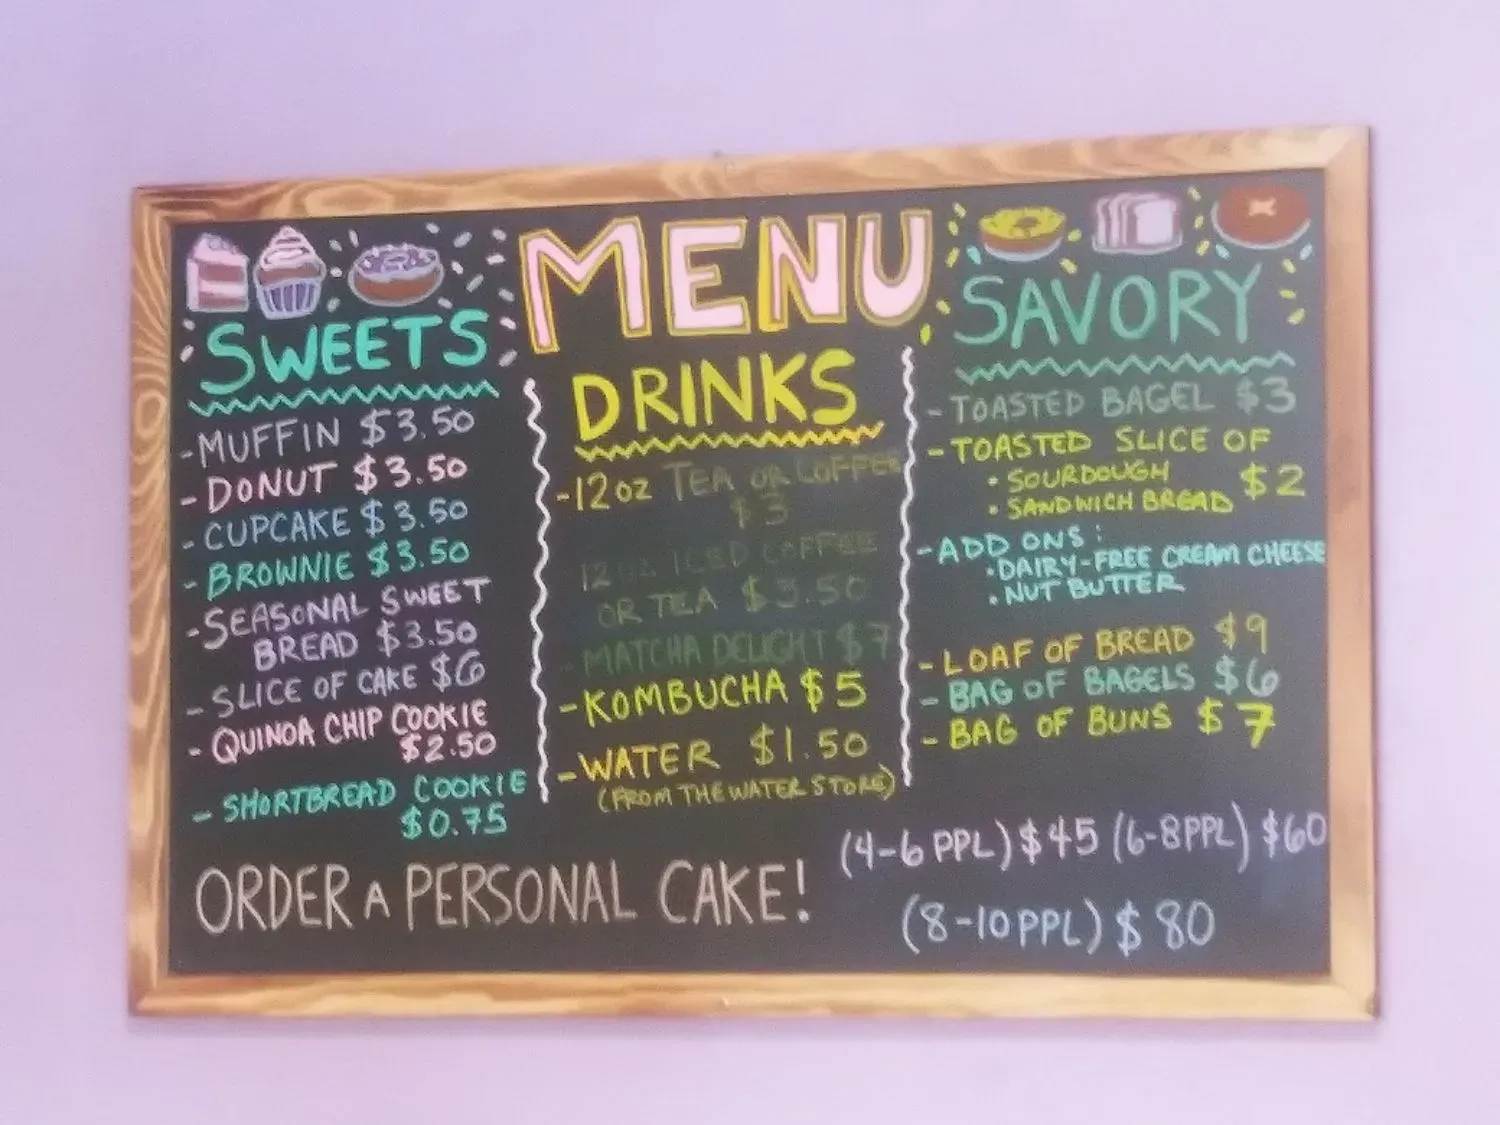 MENU
SWEETS
-MUFFIN $3.50
-DONUT $3.50
-CUPCAKE $3.50
-BROWNIE $3.50
-SEASONAL SWEET
BREAD $3.50
-SLICE OF CAKE $6
-QUINOA CHIP COOKIE
$2.50
-SHORTBREAD COOKIE
$0.75
DRINKS
-12oz TEA OR COFFEE
$3
12oz ICED COFFEE
OR TEA $3.50
-MATCHA DELIGHT $7
-KOMBUCHA $5
-WATER $1.50
(FROM THE WATER STORE)
SAVORY
-TOASTED BAGEL $3
-TOASTED SLICE OF
• SOURDOUGH
• SANDWICH BREAD $2
-ADD ONS:
• DAIRY-FREE CREAM CHEESE
• NUT BUTTER
-LOAF OF BREAD $9
-BAG OF BAGELS $6
-BAG OF BUNS $7
ORDER A PERSONAL CAKE!
(4-6 PPL) $45 (6-8PPL) $60
(8-10PPL) $80